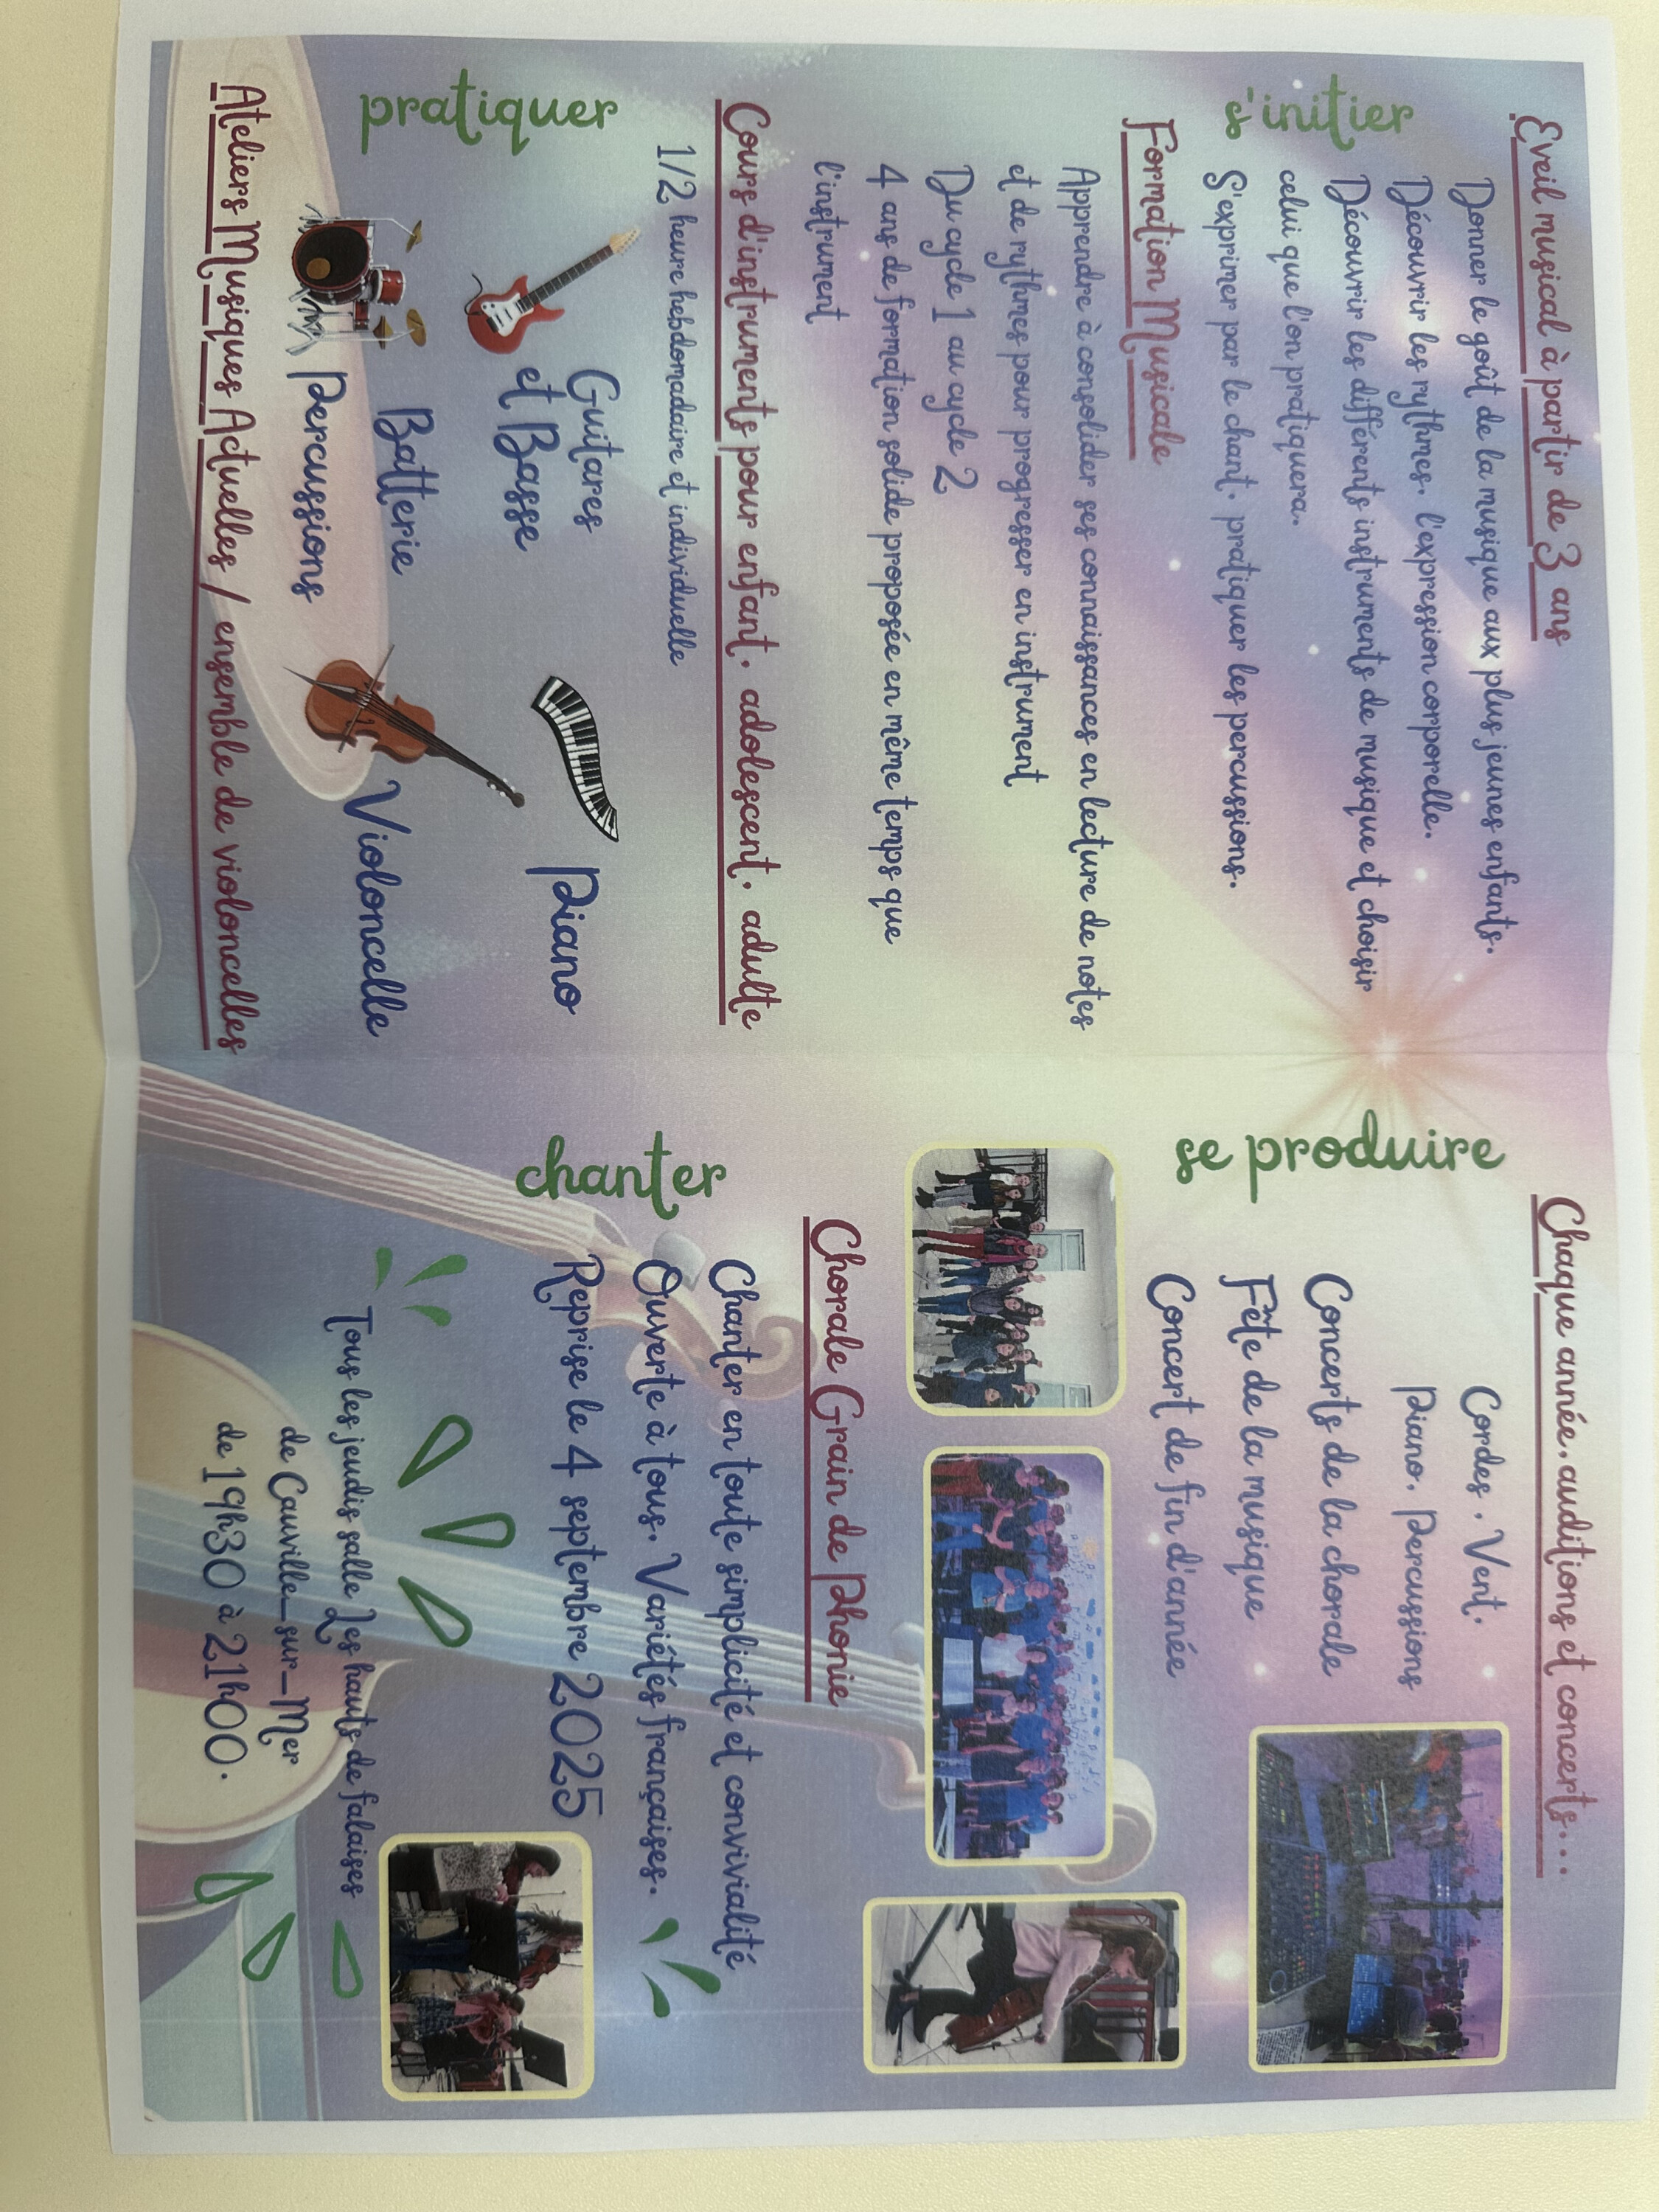 Eveil musical à partir de 3 ans
s'initier
Donner le goût de la musique aux plus jeunes enfants.
Découvrir les rythmes, l'expression corporelle.
Découvrir les différents instruments de musique et choisir
celui que l'on pratiquera.
S'exprimer par le chant, pratiquer les percussions.
Formation Musicale
Apprendre à consolider ses connaissances en lecture de notes
et de rythmes pour progresser en instrument
Du cycle 1 au cycle 2
4 ans de formation solide proposée en même temps que
l'instrument
Cours d'instruments pour enfant, adolescent, adulte
1/2 heure hebdomadaire et individuelle
pratiquer
Guitares
et Basse
Piano
Batterie
Percussions
Violoncelle
Ateliers Musiques Actuelles / ensemble de violoncelles
Chaque année, auditions et concerts...
se produire
Cordes, Vent,
Piano, Percussions
Concerts de la chorale
Fête de la musique
Concert de fin d'année
Chorale Grain de Phonie
chanter
Chanter en toute simplicité et convivialité
Ouverte à tous. Variétés françaises.
Reprise le 4 septembre 2025
Tous les jeudis salle Les hauts de falaises
de Cauville_sur_Mer
de 19h30 à 21h00.